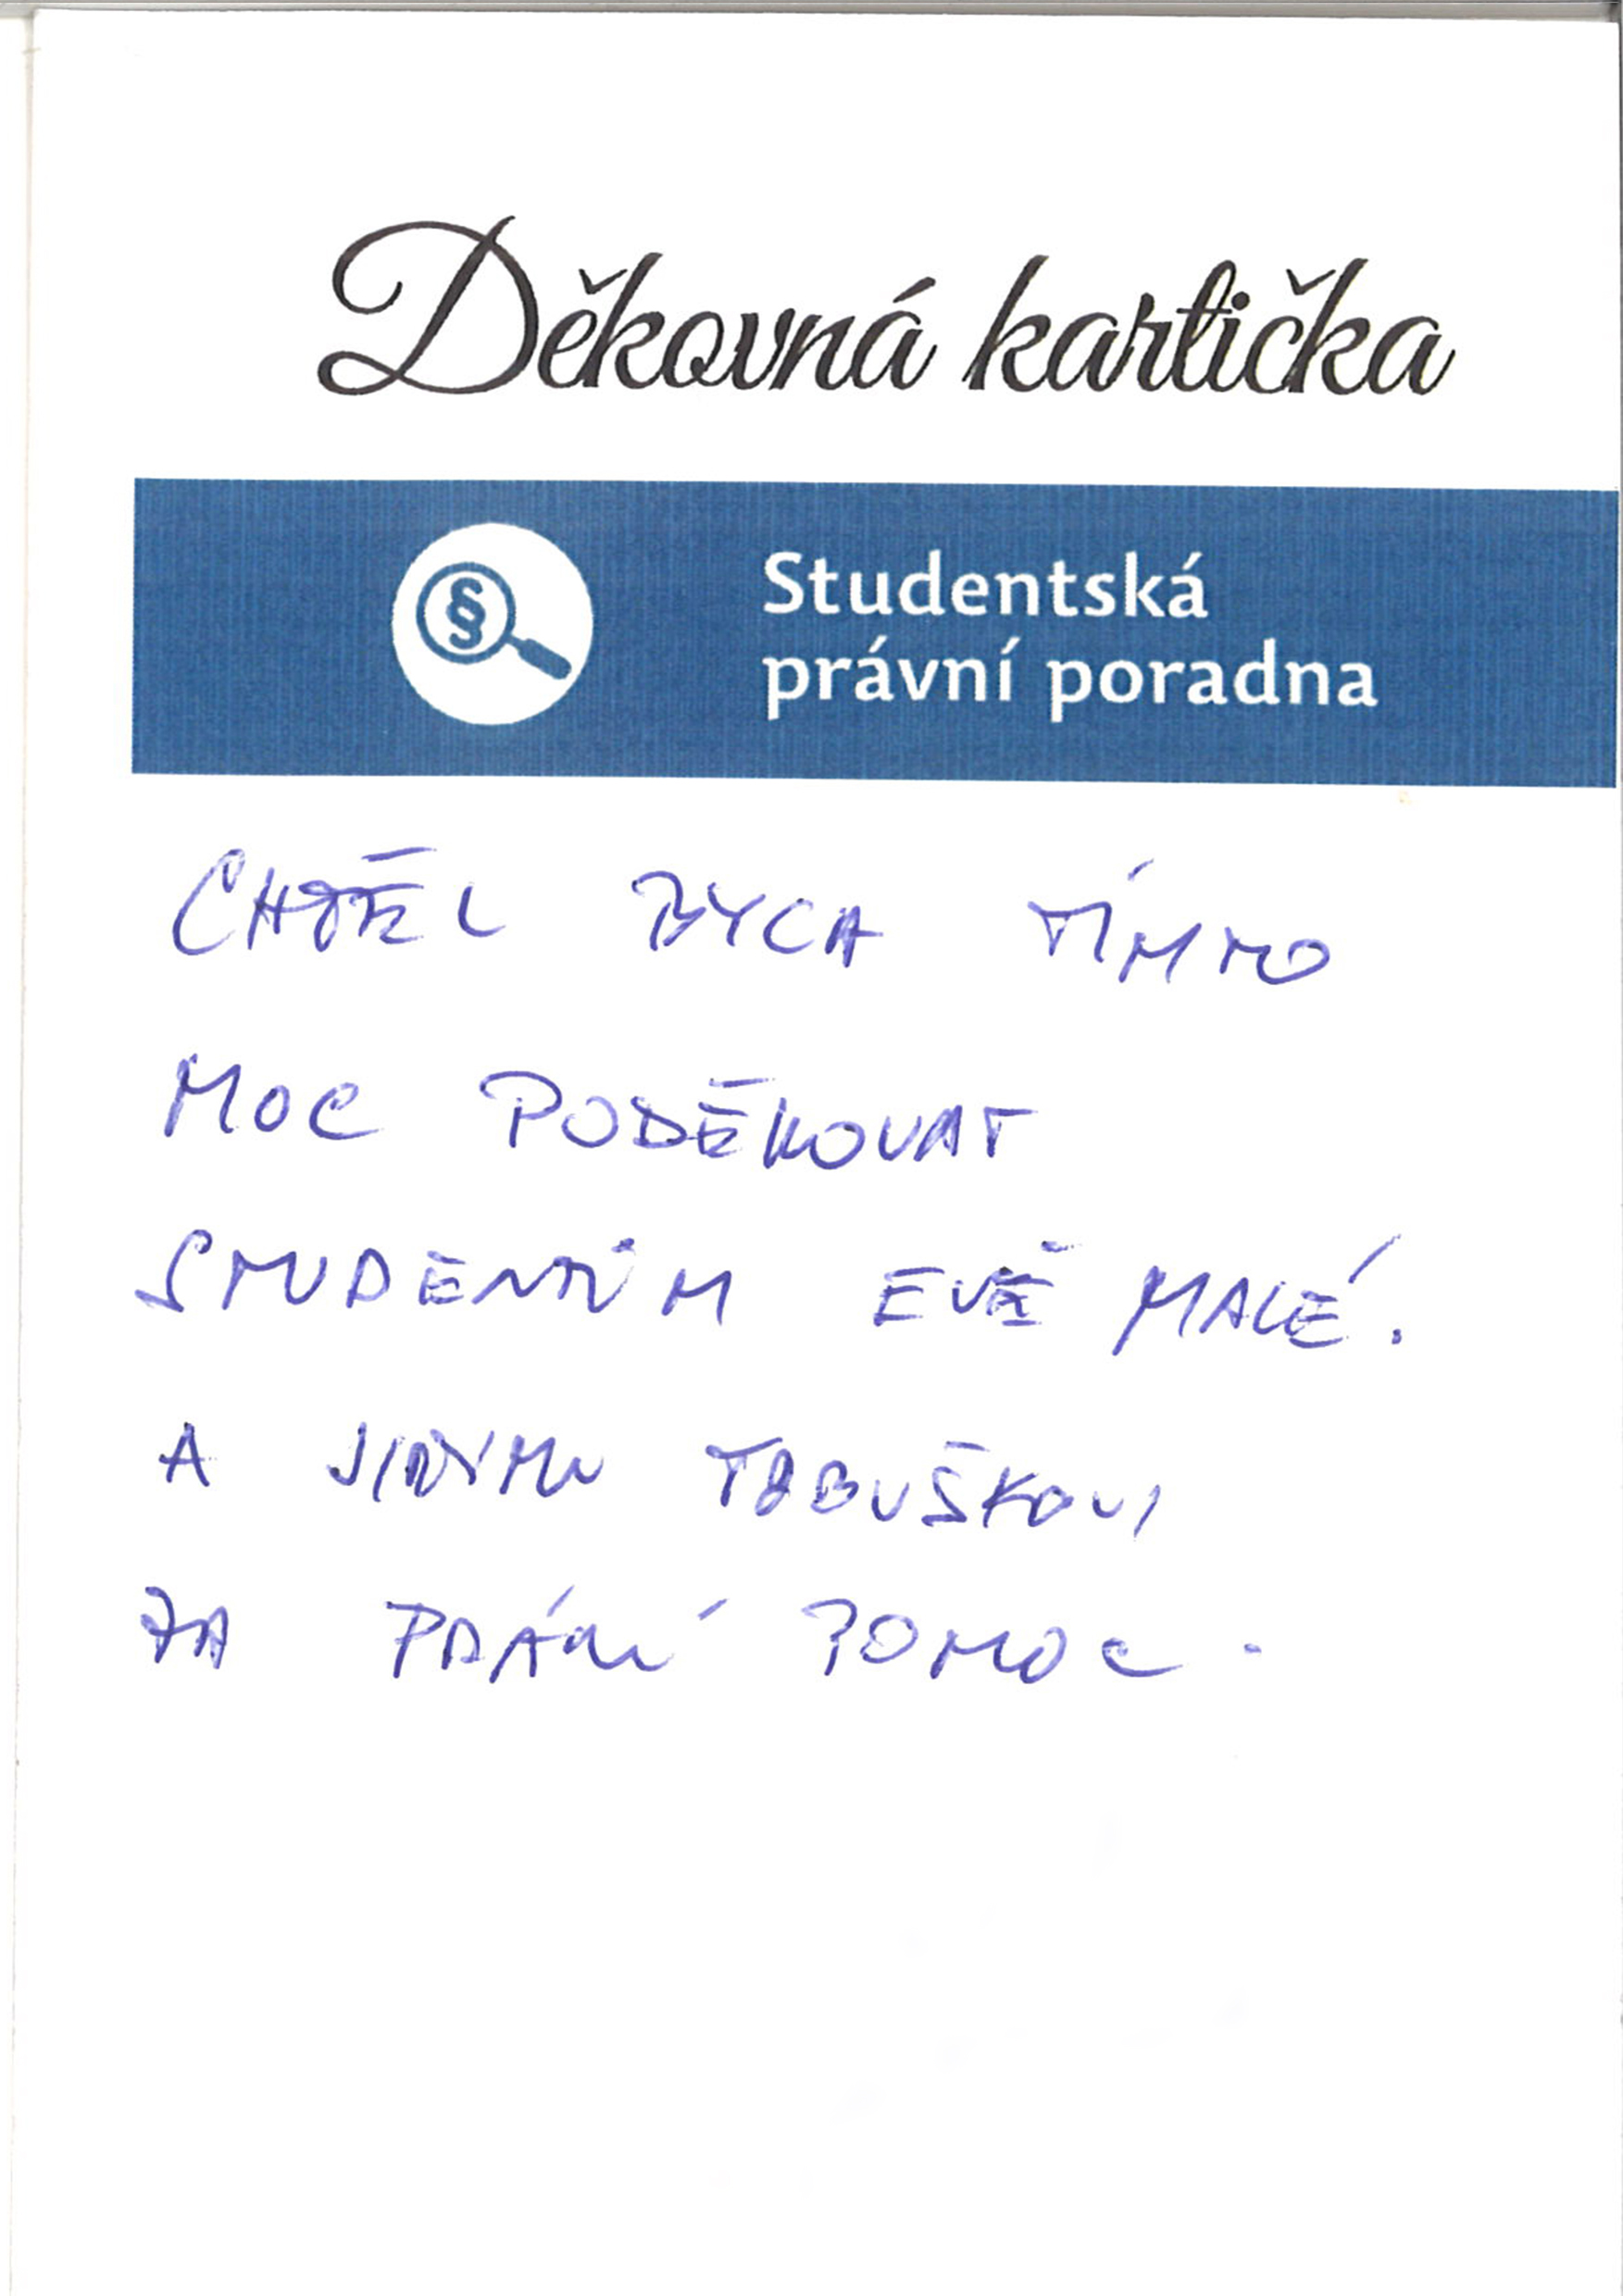 Děkovná kartička
Studentská
právní poradna
CHTĚL BYCH TÍMTO
MOC PODĚKOVAT
STUDENTŮM EVĚ MALÉ.
A JIŘÍMU
ZA PRÁVNÍ POMOC.